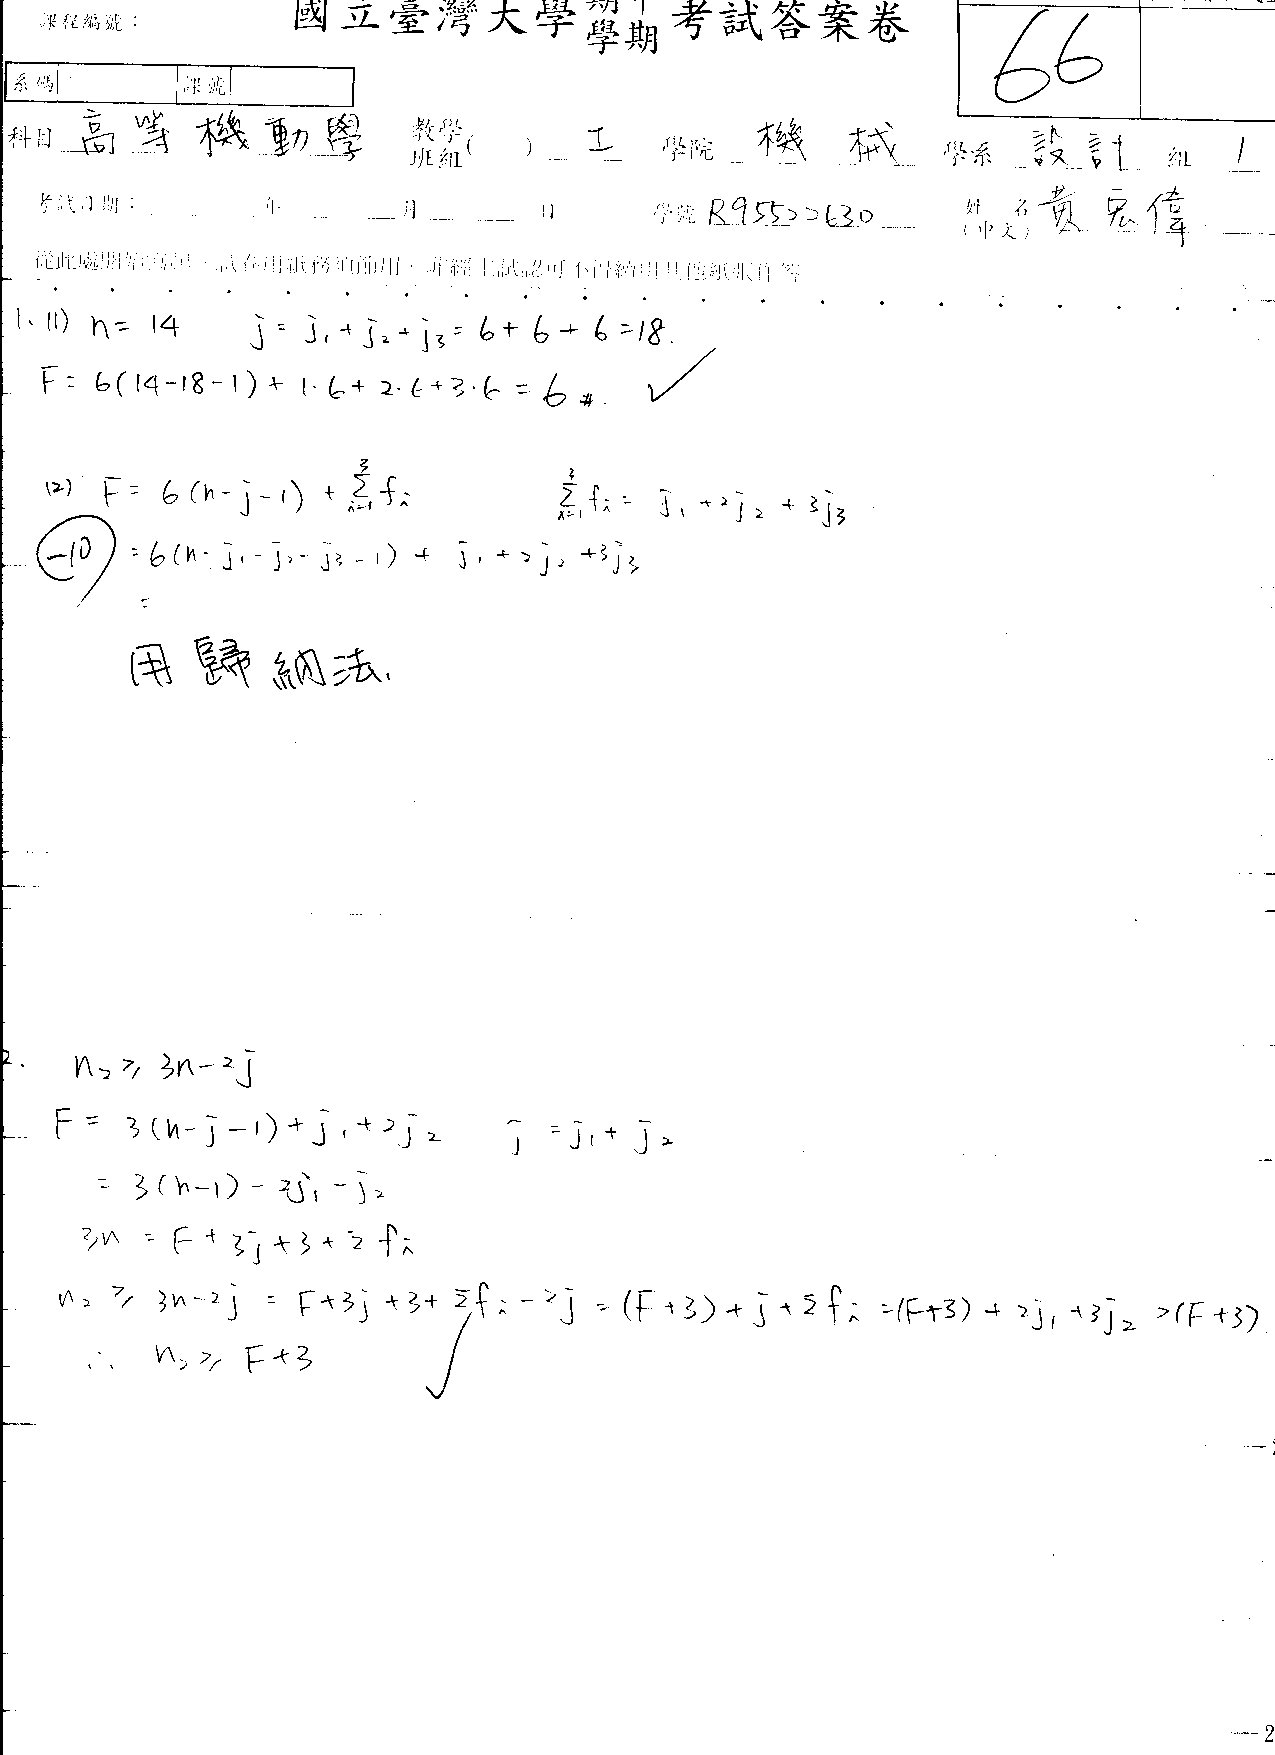 課程編號：
國立臺灣大學 期中 學期 考試答案卷
66
系碼 課號
科目 高等機動學 教學班組( ) 工 學院 機械 學系 設計 組 1
考試日期： 年 月 日 學號 R95522630 姓名(中文) 黃宏偉
1. (1) n = 14 j = j₁ + j₂ + j₃ = 6 + 6 + 6 = 18.
F = 6(14-18-1) + 1·6 + 2·6 + 3·6 = 6 #. ✓
(2) F = 6(n-j-1) + Σ³ᵢ₌₁ fᵢ Σ³ᵢ₌₁ fᵢ = j₁ + 2j₂ + 3j₃
-10 = 6(n-j₁-j₂-j₃-1) + j₁ + 2j₂ + 3j₃
=
用歸納法.
2. n₂ ≥ 3n-2j
F = 3(n-j-1) + j₁ + 2j₂ j = j₁ + j₂
= 3(n-1) - 2j₁ - j₂
3n = F + 3j + 3 + Σfᵢ
n₂ ≥ 3n-2j = F+3j+3+Σfᵢ-2j = (F+3)+j+Σfᵢ = (F+3)+2j₁+3j₂ >(F+3)
∴ n₂ ≥ F+3 ✓
—2